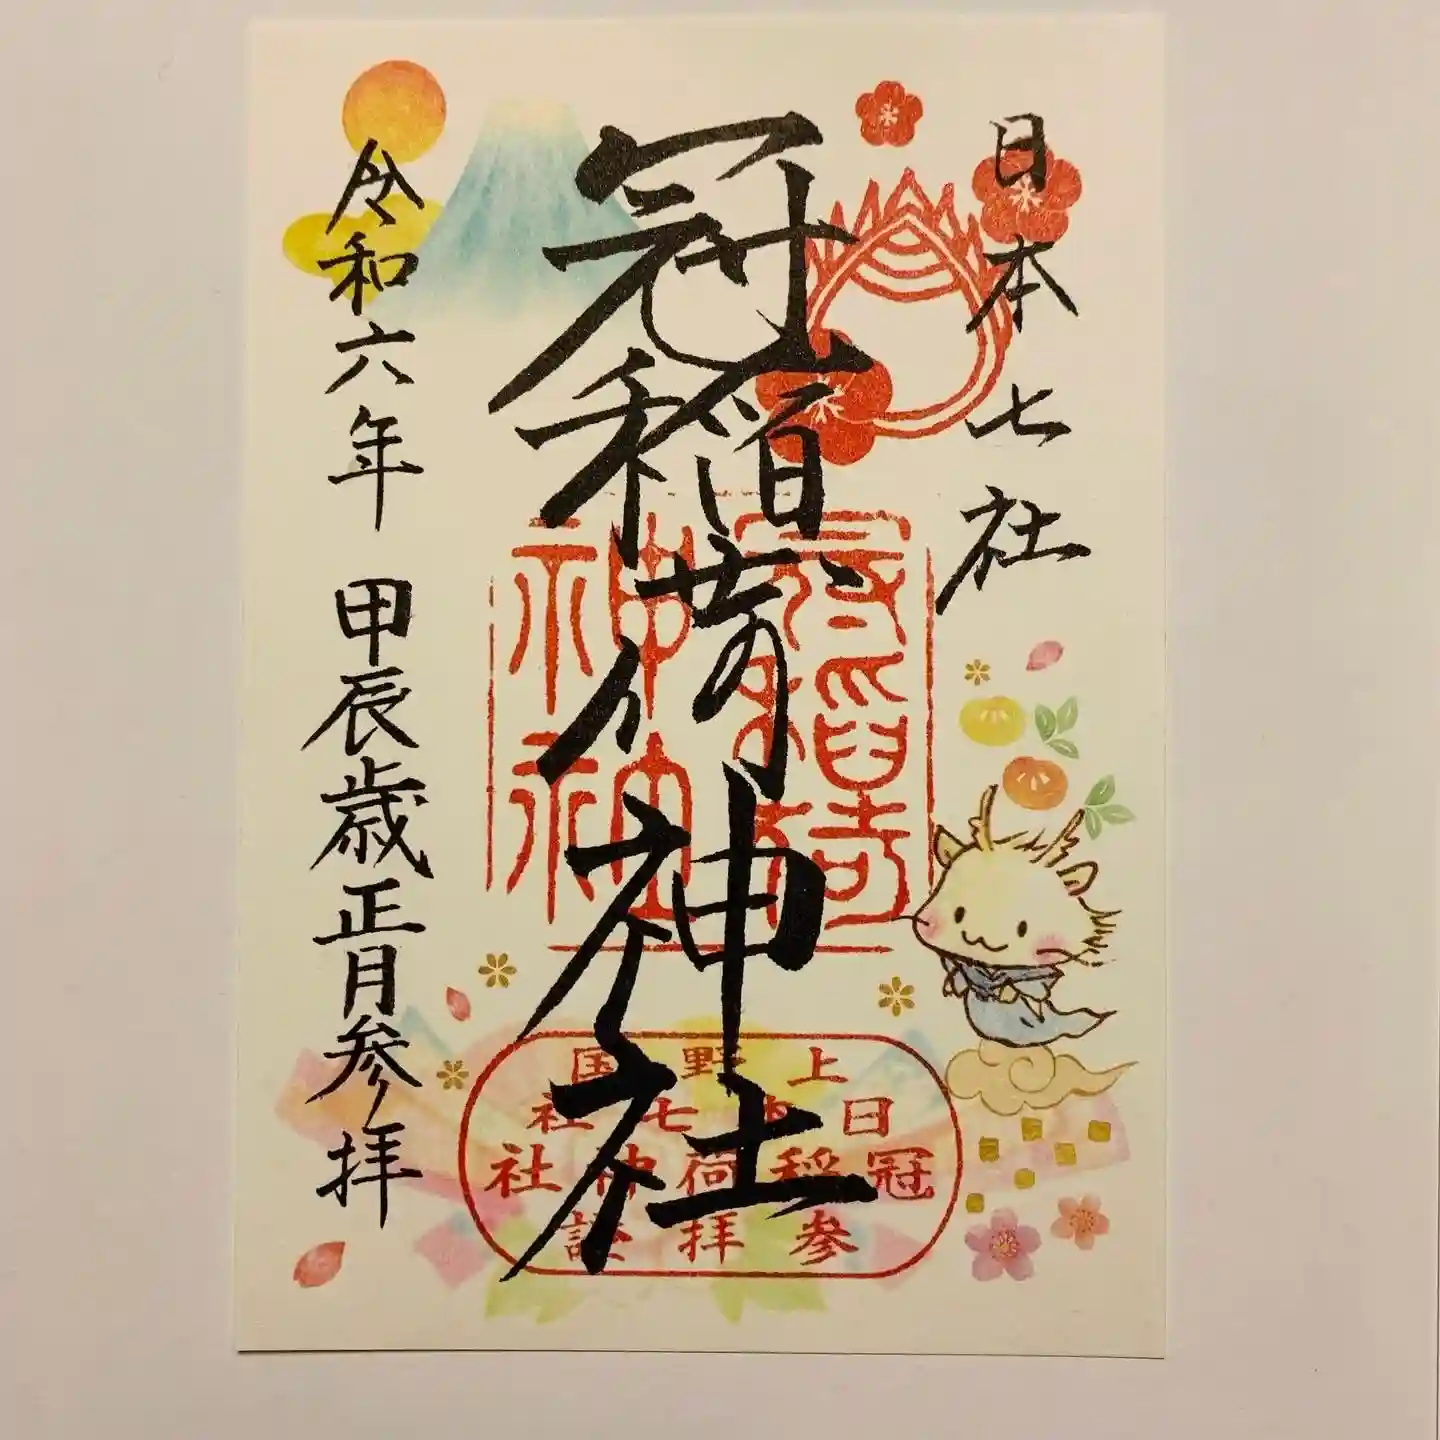 日本七社
冠稲荷神社
令和六年 甲辰歳正月参拝
冠稲荷
神社
上野国
日本七社
冠稲荷神社
参拝證